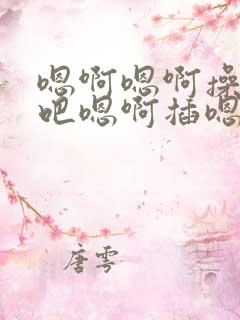 嗯啊嗯啊操
吧嗯啊插嗯
唐雩